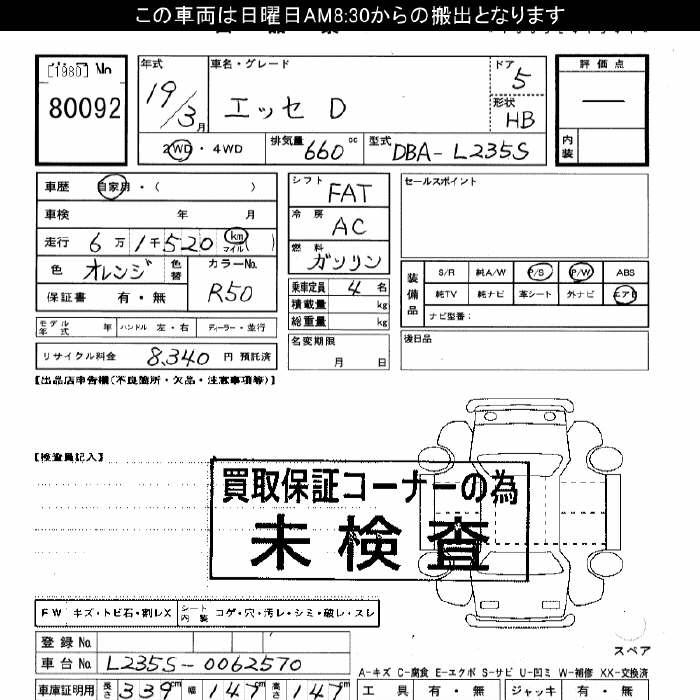 この車両は日曜日AM8:30からの搬出となります
[1980] No
80092
年式 車名・グレード ドア 5
19/3月 エッセ D 形状 HB
2WD・4WD 排気量 660cc 型式 DBA-L235S
評価点
―
内装
車歴 自家用・( )
車検 年 月
走行 6万1千520 km マイル( )
色 オレンジ 色替 カラーNo. R50
保証書 有・無
モデル年式 年 ハンドル 左・右 ディーラー・並行
リサイクル料金 8,340 円 預託済
シフト FAT
冷房 AC
燃料 ガソリン
乗車定員 4 名
積載量 kg
総重量 kg
名変期限 月 日
セールスポイント
装備品 S/R 純A/W P/S P/W ABS
純TV 純ナビ 革シート 外ナビ エアB
ナビ型番:
後日品
【出品店申告欄(不良箇所・欠品・注意事項等)】
【検査員記入】
買取保証コーナーの為
未検査
FW キズ・トビ石・割レX シート内装 コゲ・穴・汚レ・シミ・破レ・スレ
スペア
登録No.
車台No. L235S-0062570
A-キズ C-腐食 E-エクボ S-サビ U-凹ミ W-補修 XX-交換済
車庫証明用 長さ 339cm 幅 147cm 高さ 147cm
工具 有・無 ジャッキ 有・無